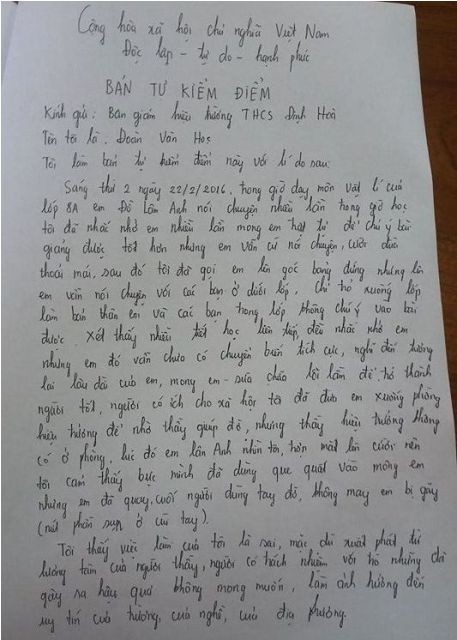 Cộng hòa xã hội chủ nghĩa Việt Nam
Độc lập - tự do - hạnh phúc
BẢN TỰ KIỂM ĐIỂM
Kính gửi: Ban giám hiệu trường THCS Định Hoà
Tên tôi là: Đoàn Văn Học
Tôi làm bản tự kiểm điểm này với lí do sau:
Sáng thứ 2 ngày 22/2/2016, trong giờ dạy môn vật lí của
lớp 8A em Đỗ Lâm Anh nói chuyện nhiều lần trong giờ học
tôi đã nhắc nhở em nhiều lần mong em trật tự để chú ý bài
giảng được tốt hơn nhưng em vẫn cứ nói chuyện, cười đùa
thoải mái, sau đó tôi đã gọi em lên góc bảng đứng nhưng lên
em vẫn nói chuyện với các bạn ở dưới lớp, chỉ trỏ xuống lớp
làm bản thân em và các bạn trong lớp không chú ý vào bài
được. Xét thấy nhiều tiết học liên tiếp đều nhắc nhở em
nhưng em đó vẫn chưa có chuyển biến tích cực, nghĩ đến tương
lai lâu dài của em, mong em sửa chữa lỗi lầm để trở thành
người tốt, người có ích cho xã hội tôi đã đưa em xuống phòng
hiệu trưởng để nhờ thầy giúp đỡ, nhưng thấy hiệu trưởng không
có ở phòng, lúc đó em Lâm Anh nhìn tôi, mặt lại cười nên
tôi cảm thấy bực mình đã dùng que quật vào mông em
nhưng em đã quay, cuối người dùng tay đỡ, không may em bị gãy
(nứt phần sụn ở cổ tay).
Tôi thấy việc làm của tôi là sai, mặc dù xuất phát từ
lương tâm của người thầy, người có trách nhiệm với trò nhưng đã
gây ra hậu quả không mong muốn, làm ảnh hưởng đến
uy tín của trường, của nghề, của địa phương.